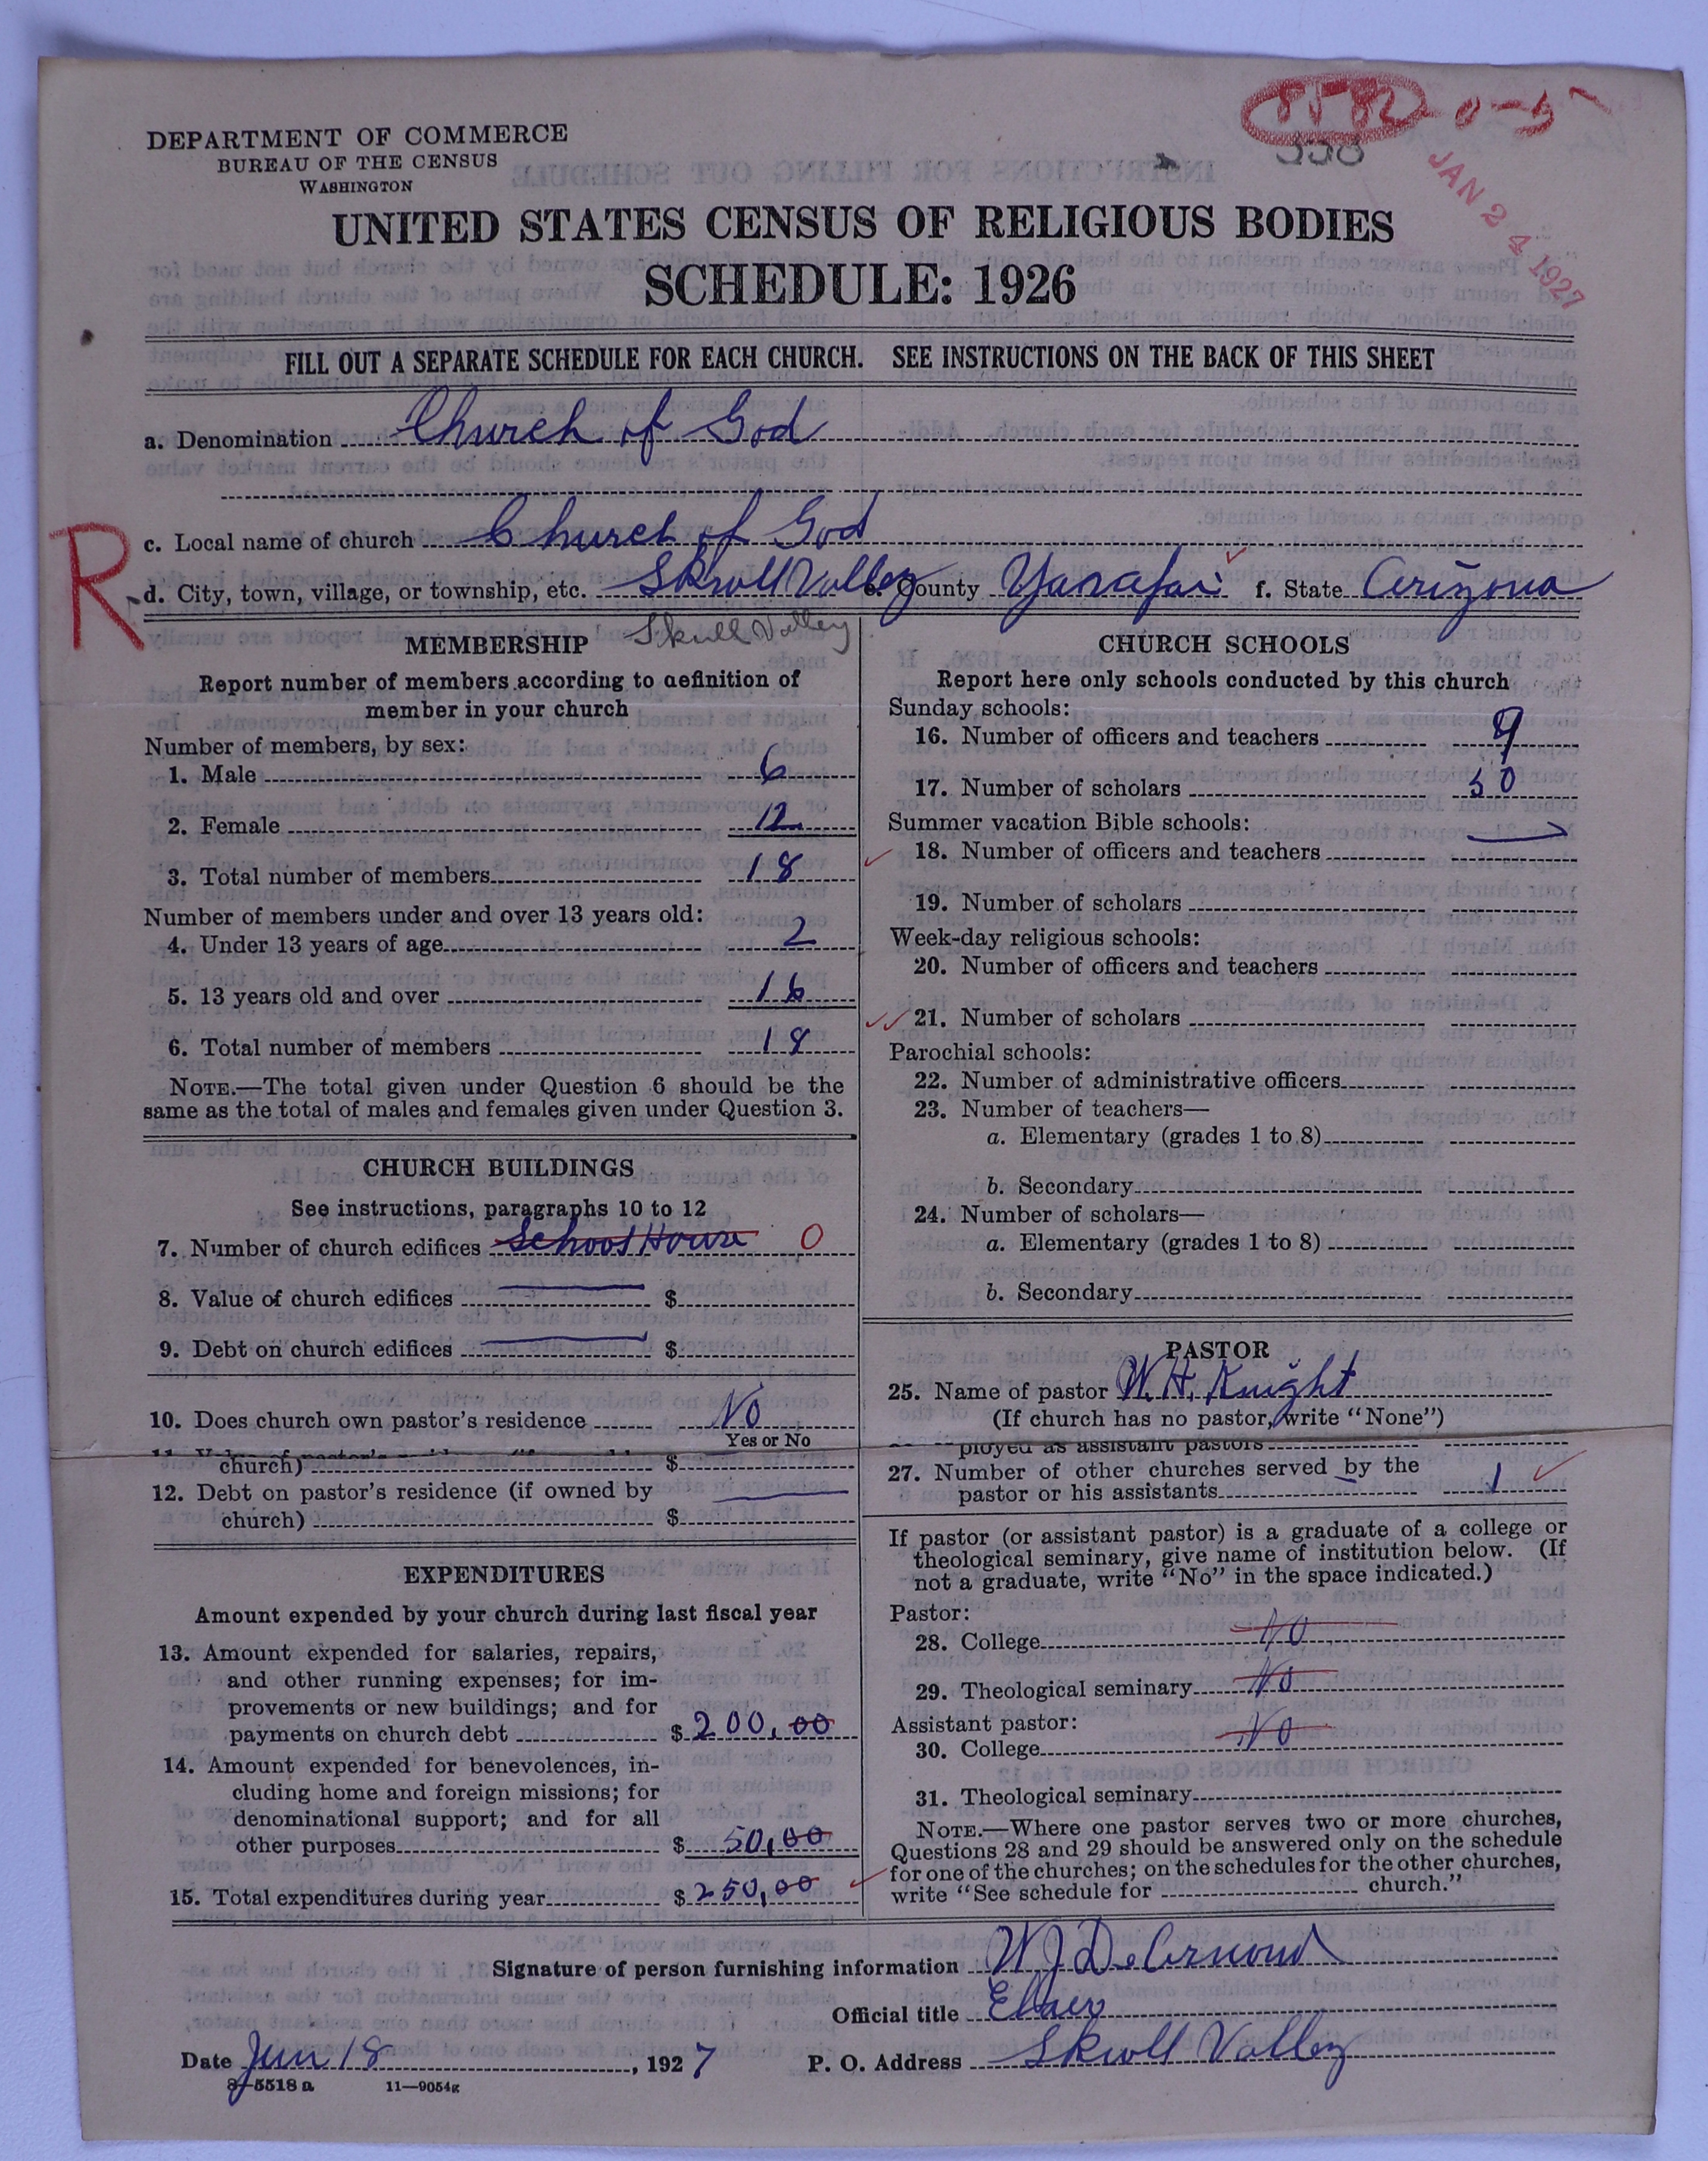 8582 0-5
JAN 24 1927
DEPARTMENT OF COMMERCE
BUREAU OF THE CENSUS
WASHINGTON
UNITED STATES CENSUS OF RELIGIOUS BODIES
SCHEDULE: 1926
FILL OUT A SEPARATE SCHEDULE FOR EACH CHURCH. SEE INSTRUCTIONS ON THE BACK OF THIS SHEET
a. Denomination Church of God
c. Local name of church Church of God
R
d. City, town, village, or township, etc. Skull Valley e. County Yavapai f. State Arizona
Skull Valley
MEMBERSHIP
Report number of members according to definition of
member in your church
Number of members, by sex:
1. Male 6
2. Female 12
3. Total number of members 18
Number of members under and over 13 years old:
4. Under 13 years of age 2
5. 13 years old and over 16
6. Total number of members 18
NOTE.—The total given under Question 6 should be the
same as the total of males and females given under Question 3.
CHURCH BUILDINGS
See instructions, paragraphs 10 to 12
7. Number of church edifices School House 0
8. Value of church edifices $
9. Debt on church edifices $
10. Does church own pastor's residence No
Yes or No
church) $
12. Debt on pastor's residence (if owned by
church) $
EXPENDITURES
Amount expended by your church during last fiscal year
13. Amount expended for salaries, repairs,
and other running expenses; for im-
provements or new buildings; and for
payments on church debt $ 200.00
14. Amount expended for benevolences, in-
cluding home and foreign missions; for
denominational support; and for all
other purposes $ 50.00
15. Total expenditures during year $ 250.00
CHURCH SCHOOLS
Report here only schools conducted by this church
Sunday schools:
16. Number of officers and teachers 9
17. Number of scholars 50
Summer vacation Bible schools:
18. Number of officers and teachers
19. Number of scholars
Week-day religious schools:
20. Number of officers and teachers
21. Number of scholars
Parochial schools:
22. Number of administrative officers
23. Number of teachers—
a. Elementary (grades 1 to 8)
b. Secondary
24. Number of scholars—
a. Elementary (grades 1 to 8)
b. Secondary
PASTOR
25. Name of pastor W. H. Knight
(If church has no pastor, write "None")
ployed as assistant pastors
27. Number of other churches served by the
pastor or his assistants 1
If pastor (or assistant pastor) is a graduate of a college or
theological seminary, give name of institution below. (If
not a graduate, write "No" in the space indicated.)
Pastor:
28. College No
29. Theological seminary No
Assistant pastor:
30. College No
31. Theological seminary
NOTE.—Where one pastor serves two or more churches,
Questions 28 and 29 should be answered only on the schedule
for one of the churches; on the schedules for the other churches,
write "See schedule for church."
Signature of person furnishing information W J DeArmond
Official title Elder
Date Jan 18, 1927 P. O. Address Skull Valley
8-5518 a 11—9054g